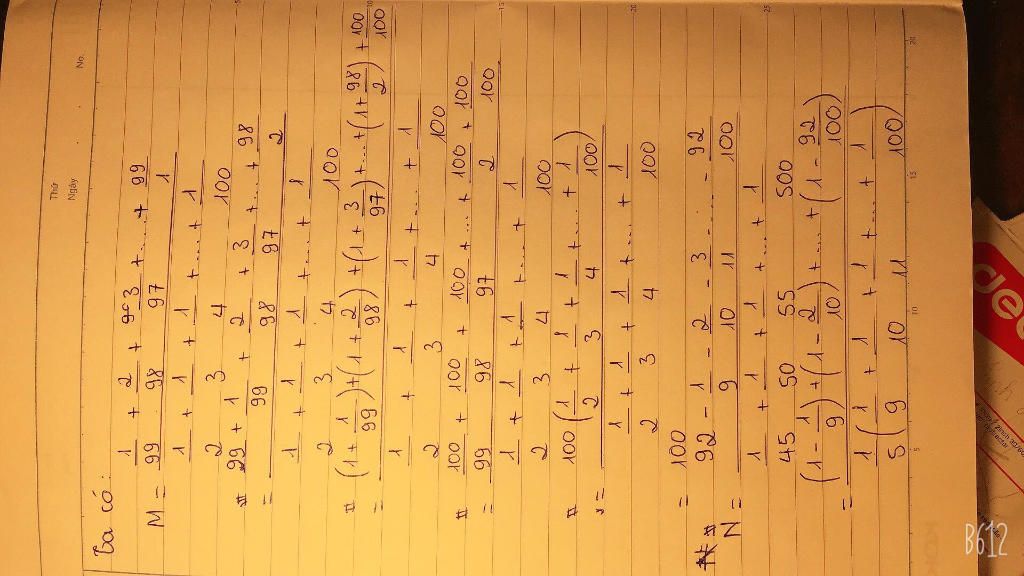 Thứ
Ngày
No.
Ta có:
1/99 + 2/98 + 3/97 + .... + 99/1
M = ―――
1/2 + 1/3 + 1/4 + .... + 1/100
99 + 1/99 + 2/98 + 3/97 + ... + 98/2
= ―――
1/2 + 1/3 + 1/4 + ... + 1/100
(1 + 1/99) + (1 + 2/98) + (1 + 3/97) + ... + (1 + 98/2) + 100/100
= ―――
1/2 + 1/3 + 1/4 + .... + 1/100
100/99 + 100/98 + 100/97 + ... + 100/2 + 100/100
= ―――
1/2 + 1/3 + 1/4 + ... + 1/100
100 (1/2 + 1/3 + 1/4 + ... + 1/100)
= ―――
1/2 + 1/3 + 1/4 + .... + 1/100
= 100
92 - 1/9 - 2/10 - 3/11 - .... - 92/100
N = ―――
1/45 + 1/50 + 1/55 + .... + 1/500
(1 - 1/9) + (1 - 2/10) + ... + (1 - 92/100)
= ―――
1/5 (1/9 + 1/10 + 1/11 + ... + 1/100)
5
10
15
20
25
B612